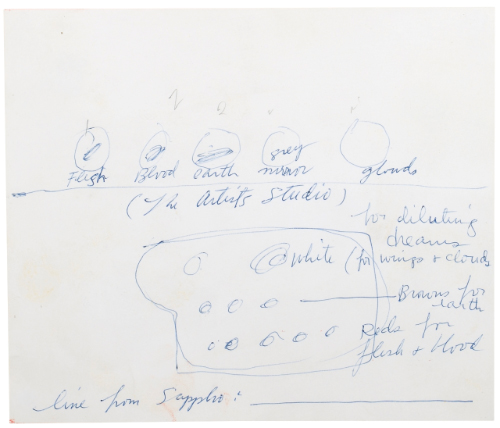 grey
Flesh Blood earth mirror clouds
(The Artist's Studio)
for diluting
dreams
White (for wings + clouds
Browns for
earth
Reds for
flesh + blood
line from Sappho: